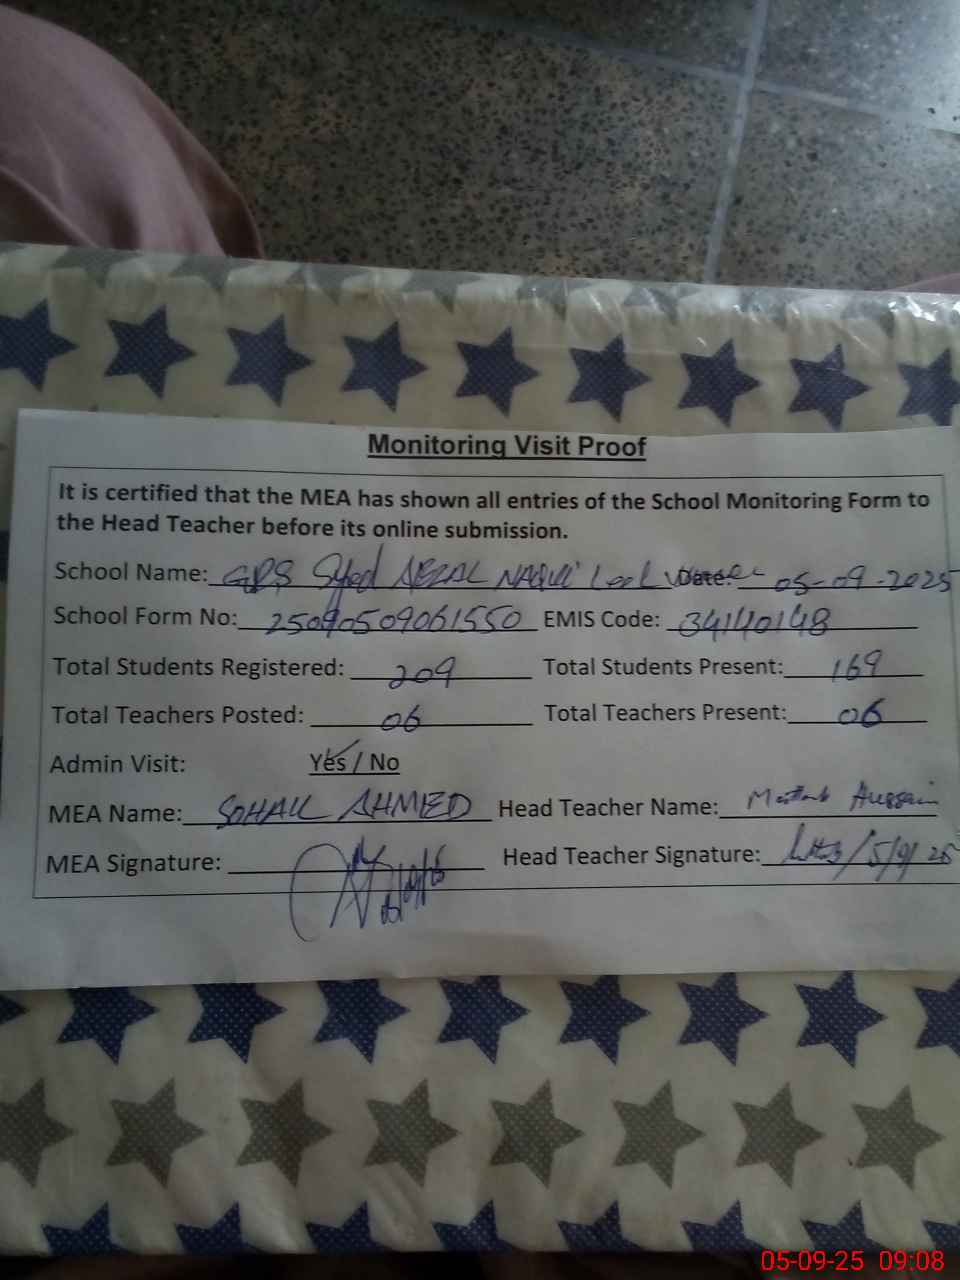 Monitoring Visit Proof
It is certified that the MEA has shown all entries of the School Monitoring Form to
the Head Teacher before its online submission.
School Name: GPS Syed AFZAL NAQUI Date: 05-09-2025
School Form No: 25090509061550 EMIS Code: 34140148
Total Students Registered: 209 Total Students Present: 169
Total Teachers Posted: 06 Total Teachers Present: 06
Admin Visit: Yes / No
MEA Name: SOHAIL AHMED Head Teacher Name: Hussain
MEA Signature: Head Teacher Signature: /5/9/25
05-09-25 09:08